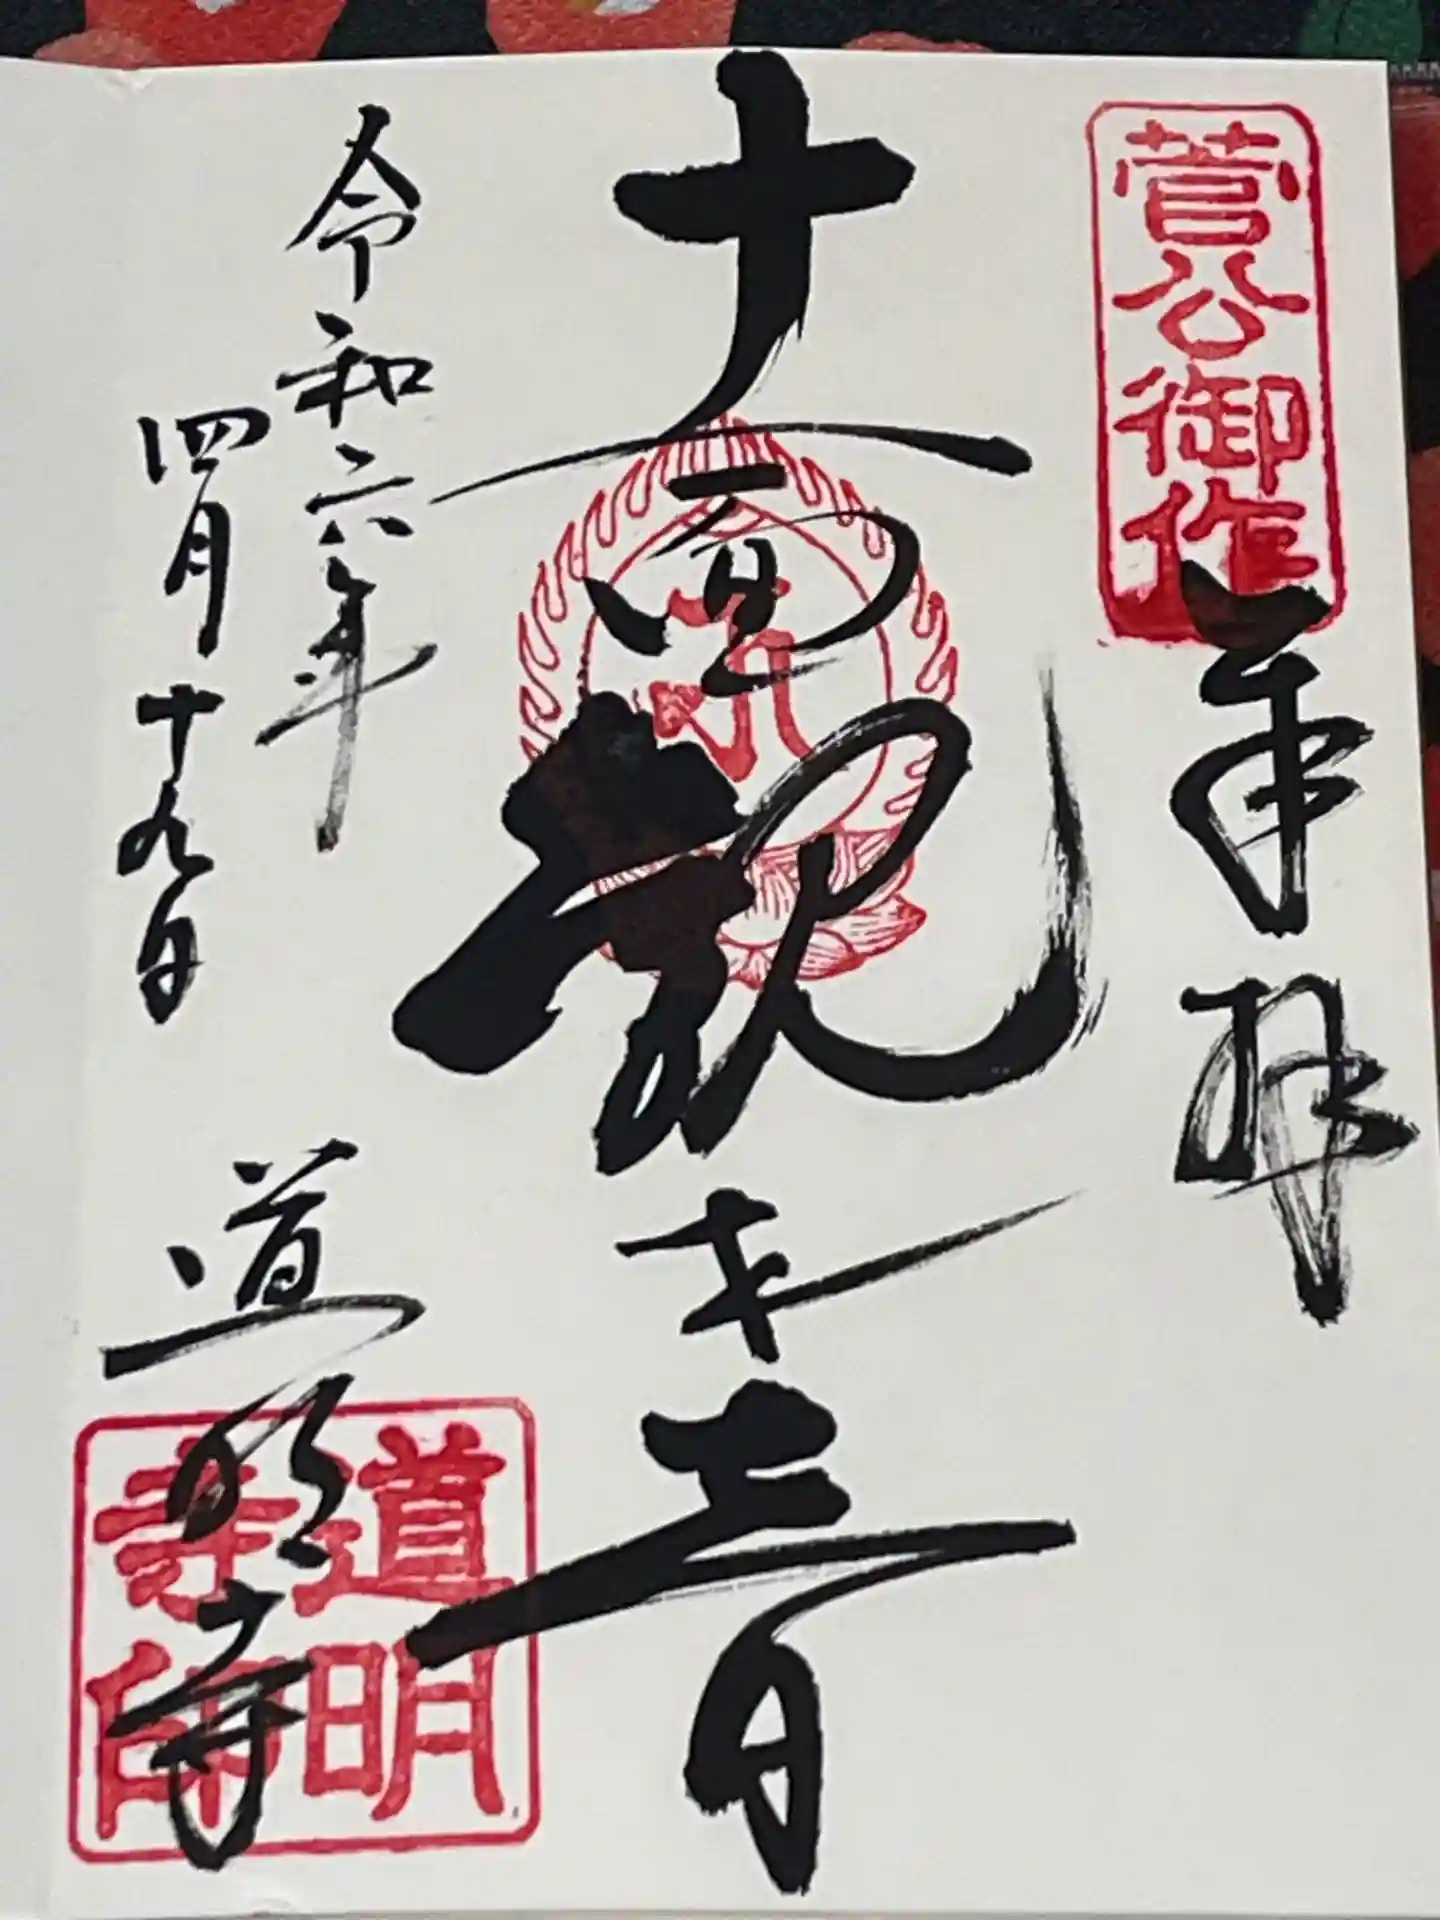 菅公御作
奉拝
十一面観世音
令和六年
四月十九日
道明寺
道明寺印